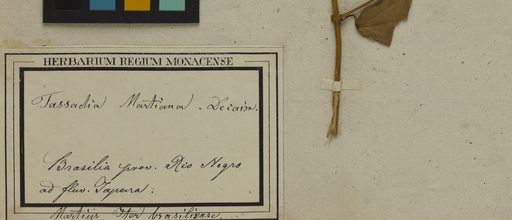 HERBARIUM REGIUM MONACENSE
Tassadia Martiana. Decaisn.
Brasilia prov. Rio Negro
ad fluv. Japura.
Martius Iter brasiliense.